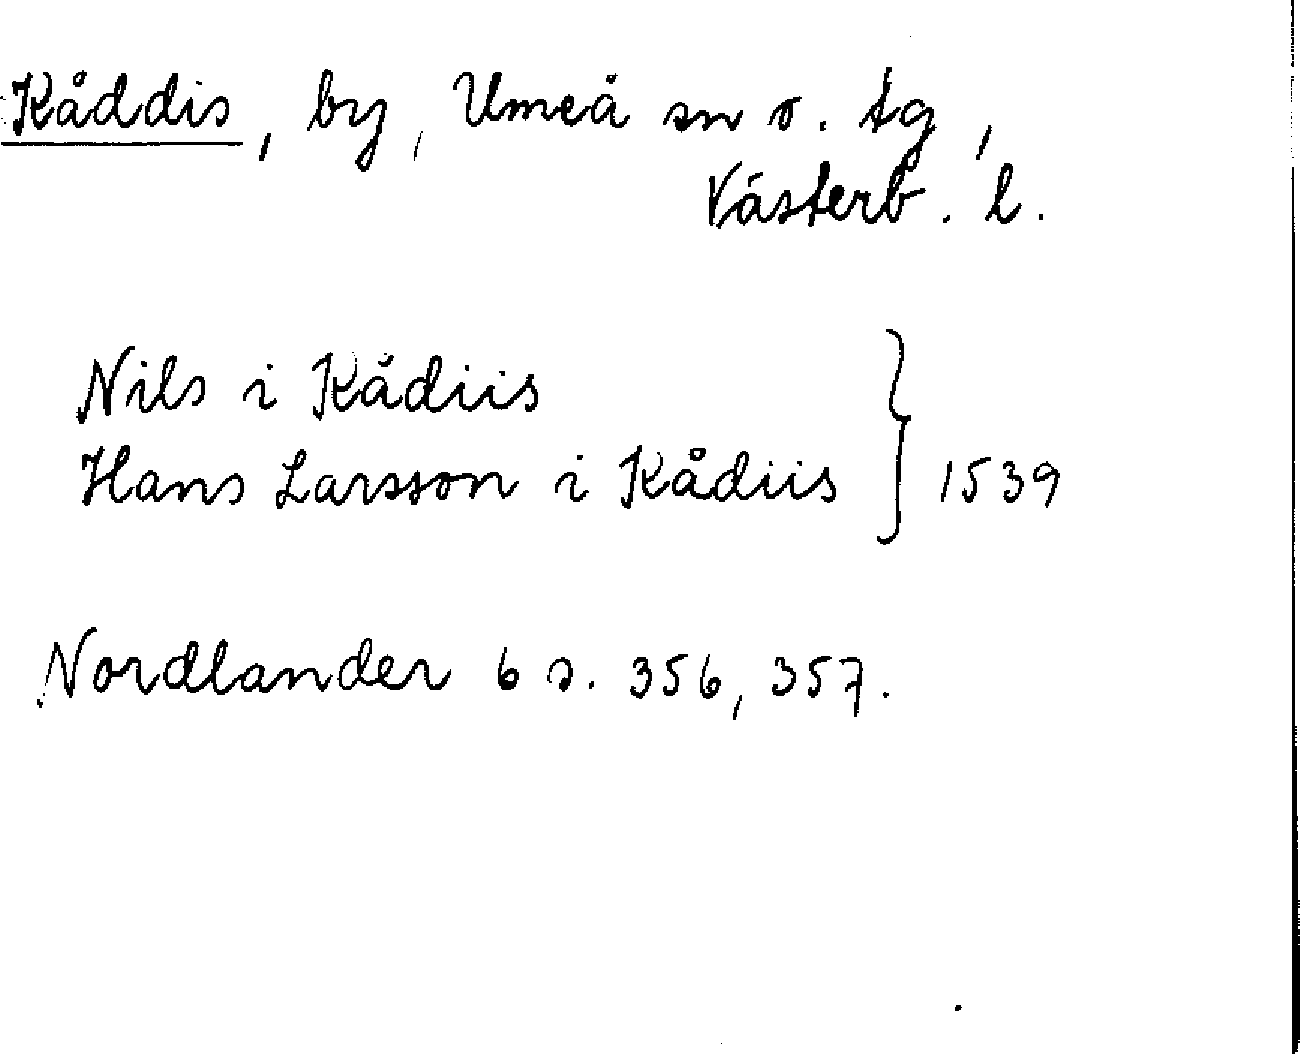 Kåddis, by, Umeå sn o. tg,
Västerb. l.
Nils i Kådiis
Hans Larsson i Kådiis } 1539
Nordlander 6 s. 356, 357.